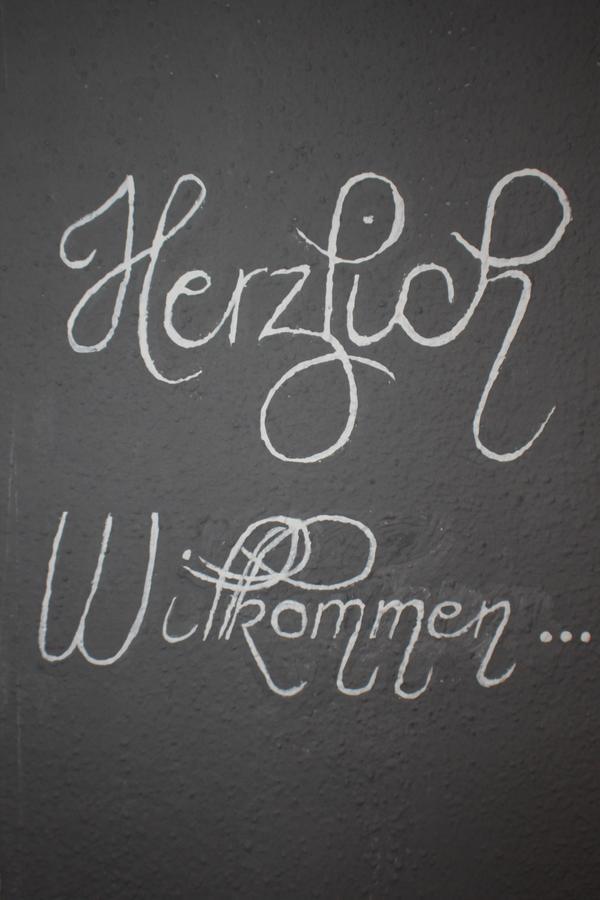 Herzlich
Willkommen...